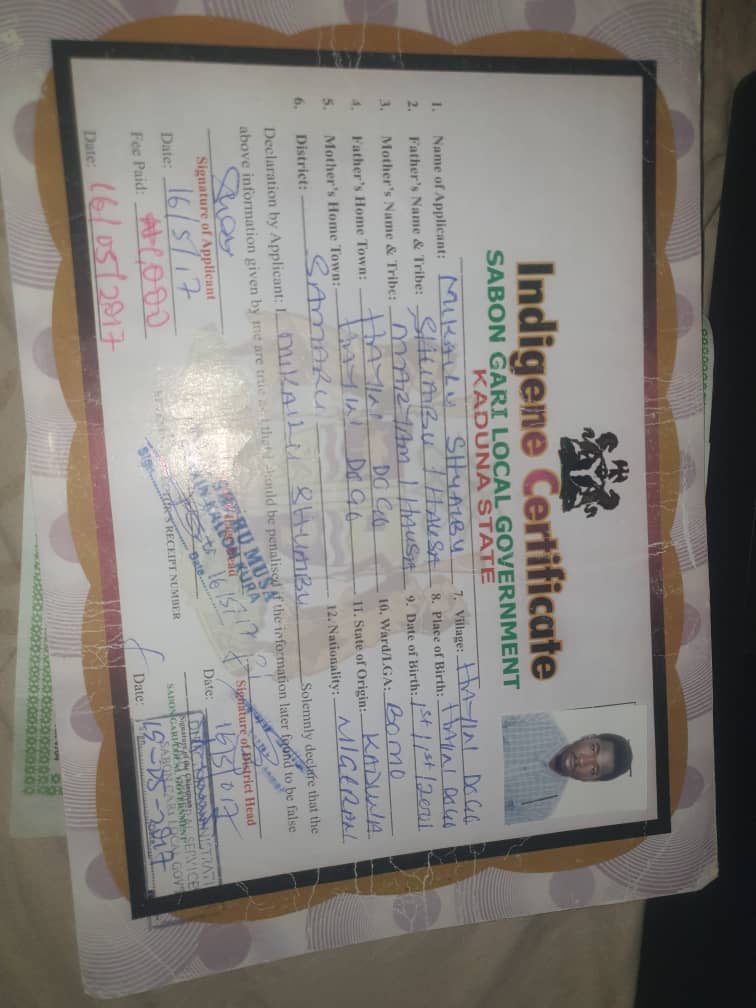 Indigene Certificate
SABON GARI LOCAL GOVERNMENT
KADUNA STATE
1. Name of Applicant: MIKAILU SHUAIBU
2. Father's Name & Tribe: SHUAIBU / HAUSA
3. Mother's Name & Tribe: MARIYAM / HAUSA
4. Father's Home Town: HAYIN DOGO
5. Mother's Home Town: HAYIN DOGO
6. District: SAMARU
7. Village: HAYIN DOGO
8. Place of Birth: HAYIN DOGO
9. Date of Birth: 1st/1st/
10. Ward/LGA: BOMO
11. State of Origin: KADUNA
12. Nationality: NIGERIAN
Declaration by Applicant: I MIKAILU SHUAIBU Solemnly declare that the
above information given by me are true and that I should be penalised if the information later found to be false
Signature of Applicant
Date: 16/5/17
Village Head
MUSA
16/5/17
Signature of District Head
Date:
Fee Paid: ₦1,000
Date: 16/05/2017
RECEIPT NUMBER
SABON GARI LOCAL GOVERNMENT
Date: